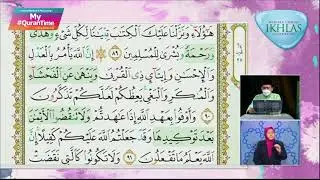 My
#QuranTime
IKHLAS
هَٰٓؤُلَآءِ وَنَزَّلْنَا عَلَيْكَ ٱلْكِتَٰبَ تِبْيَٰنًا لِّكُلِّ شَىْءٍ وَهُدًى
وَرَحْمَةً وَبُشْرَىٰ لِلْمُسْلِمِينَ ٨٩ إِنَّ ٱللَّهَ يَأْمُرُ بِٱلْعَدْلِ
وَٱلْإِحْسَٰنِ وَإِيتَآئِ ذِى ٱلْقُرْبَىٰ وَيَنْهَىٰ عَنِ ٱلْفَحْشَآءِ
وَٱلْمُنكَرِ وَٱلْبَغْىِ يَعِظُكُمْ لَعَلَّكُمْ تَذَكَّرُونَ
٩٠ وَأَوْفُوا۟ بِعَهْدِ ٱللَّهِ إِذَا عَٰهَدتُّمْ وَلَا تَنقُضُوا۟ ٱلْأَيْمَٰنَ
بَعْدَ تَوْكِيدِهَا وَقَدْ جَعَلْتُمُ ٱللَّهَ عَلَيْكُمْ كَفِيلًا إِنَّ
ٱللَّهَ يَعْلَمُ مَا تَفْعَلُونَ ٩١ وَلَا تَكُونُوا۟ كَٱلَّتِى نَقَضَتْ